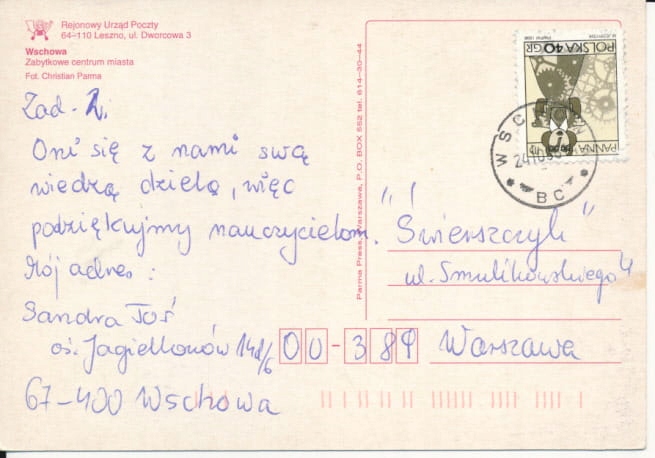 Rejonowy Urząd Poczty
64–110 Leszno, ul. Dworcowa 3
Wschowa
Zabytkowe centrum miasta
Fot. Christian Parma
Zad. 2.
Oni się z nami swą
wiedzą dzielą, więc
podziękujmy nauczycielom.
Mój adres:
Sandra Toś
oś. Jagiellonów 14d/6
67–400 Wschowa
Parma Press, Warszawa, P.O. BOX 552 tel. 614-30-44
POLSKA 40 GR
PANNA
WSCHOWA
BC
"Świerszczyk"
ul. Smulikowskiego 4
00-389 Warszawa